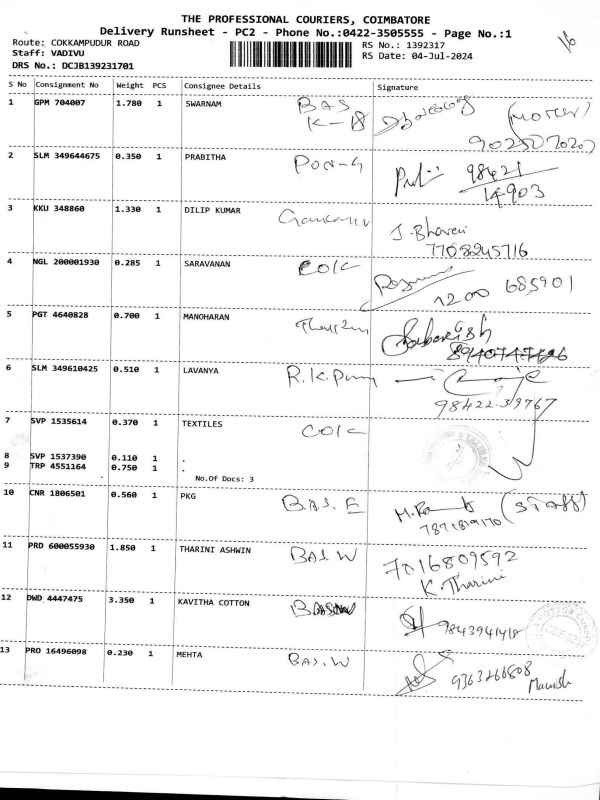 THE PROFESSIONAL COURIERS, COIMBATORE
Delivery Runsheet - PC2 - Phone No.:0422-3505555 - Page No.:1
16
Route: COKKAMPUDUR ROAD
Staff: VADIVU
DRS No.: DCJB139231701
RS No.: 1392317
RS Date: 04-Jul-2024
S No Consignment No Weight PCS Consignee Details Signature
1 GPM 704007 1.780 1 SWARNAM BAS
K-18
2 SLM 349644675 0.350 1 PRABITHA 98421
14903
3 KKU 348860 1.330 1 DILIP KUMAR J. Bhaveni
7708245716
4 NGL 200001930 0.285 1 SARAVANAN COIK
1200 685901
5 PGT 4640828 0.700 1 MANOHARAN
6 SLM 349610425 0.510 1 LAVANYA R.K.Pum
98422-39767
7 SVP 1535614 0.370 1 TEXTILES COIK
8 SVP 1537390 0.110 1 .
9 TRP 4551164 0.750 1 .
No.Of Docs: 3
10 CNR 1806501 0.560 1 PKG B.A.S. E
7871819170
11 PRD 600055930 1.850 1 THARINI ASHWIN BAS.W 7016809592
K. Tharini
12 DWD 4447475 3.350 1 KAVITHA COTTON 9843941418
13 PRO 16496098 0.230 1 MEHTA BAS.W 9363266808
Manish